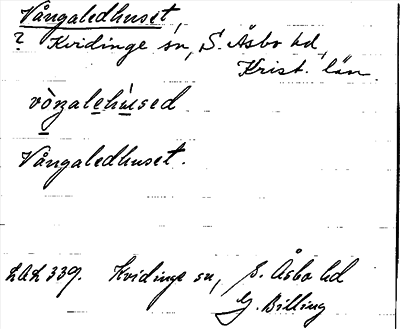 Vångaledhuset
? Kvidinge sn, S. Åsbo hd,
Krist. län.
vòŋalehùsed
Vångaledhuset.
LAL 339. Kvidinge sn, S. Åsbo hd
G. Billing